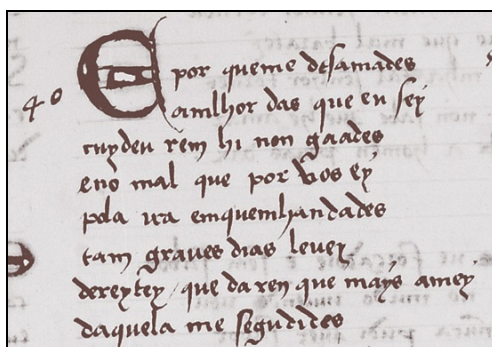 40
E por queme desamades
amilhor das que eu sey
cuydeu rem hi non gaades
eno mal que por vos ey
pola ira emquemhandades
tam graves dias levey
dereytey que da ren que mays amey
daquela me segudides